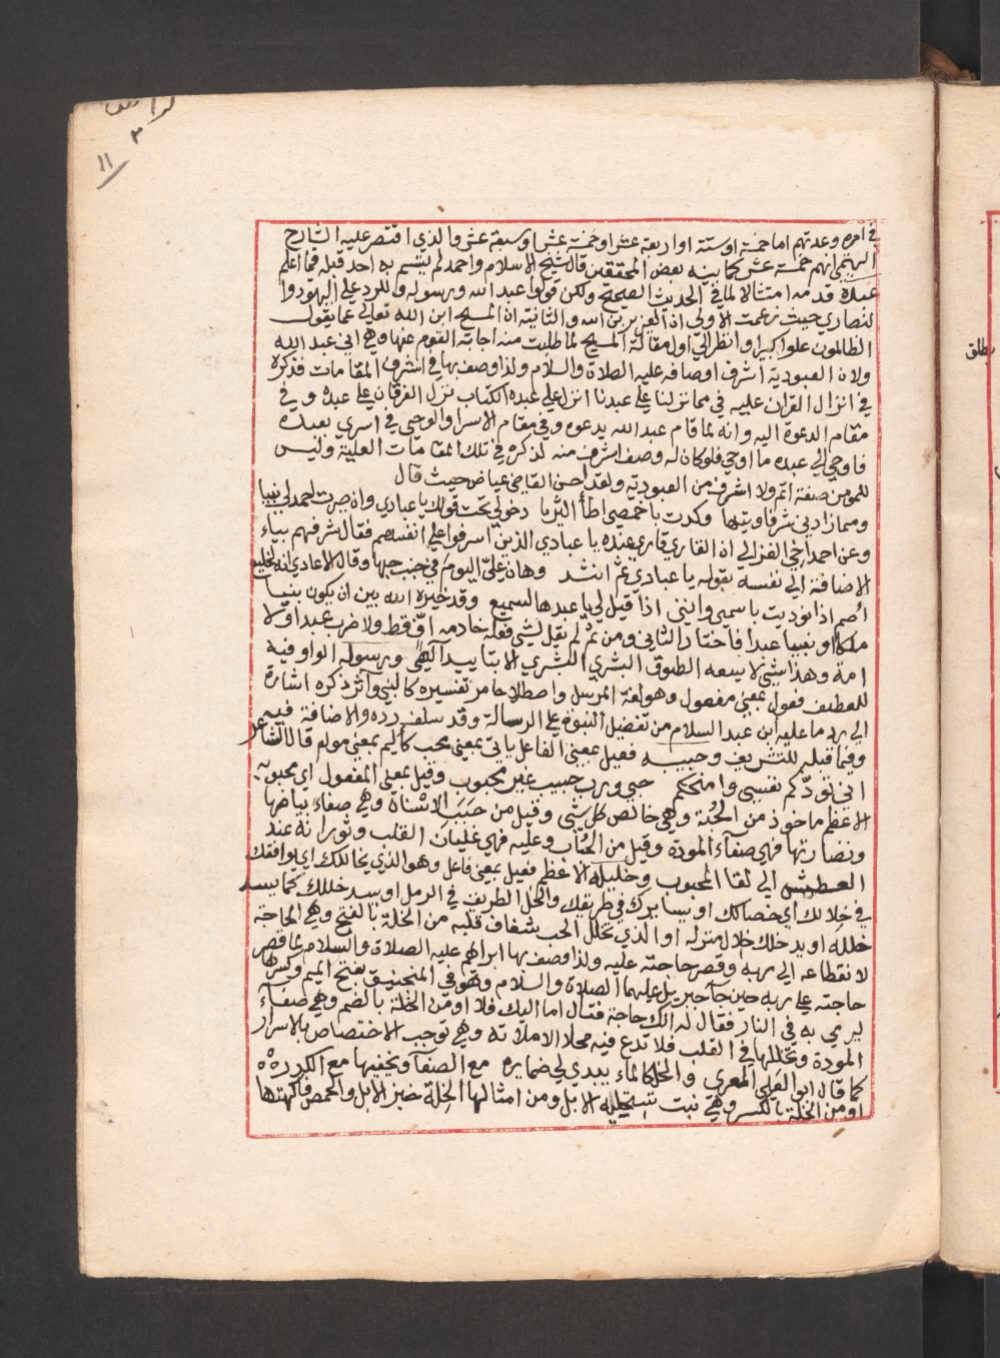 ١١
في امره وعدتهم اما خمسة اوستة او اربعة عشر او خمسة عشر او سبعة عشر والذي اقتصر عليه الشارح
الهيتمي انهم خمسة عشر كما بينه بعض المحققين قال شيخ الاسلام واحمد لم يتسم به احد قبله فيما اعلم
عبده قدمه امتثالا لما في الحديث الصحيح ولكن قولوا عبد الله ورسوله وللرد علي اليهود وا
لنصاري حيث زعمت الاولي ان العزير بن الله والثانية ان المسيح ابن الله تعالي عما يقول
الظالمون علوا كبيرا وانظر الي اول مقالة المسيح لما طلبت منه اجابة القوم عنها وهي اني عبد الله
ولان العبودية اشرف اوصافه عليه الصلاة والسلام ولذا وصف بها في اشرف المقامات فذكره
في انزال القران عليه في مما نزلنا علي عبدنا انزل علي عبده الكتاب نزل الفرقان علي عبده وفي
مقام الدعوة اليه وانه لما قام عبد الله يدعوه وفي مقام الاسرا والوحي في اسري بعبده
فاوحي الي عبده ما اوحي فلو كان له وصف اشرف منه لذكره في تلك المقامات العلية وليس
للمومن صفة اتم ولا اشرف من العبودية ولقد احسن القاضي عياض حيث قال
ومما زادني شرفا وتيها وكدت باخمصي اطأ الثريا دخولي تحت قولك يا عبادي وان صيرت احمد لي نبيا
وعن احمد اخي الغزالي ان القاري قاري عنده يا عبادي الذين اسرفوا علي انفسهم فقال شرفهم بياء
الاضافة الي نفسه بقوله يا عبادي ثم انشد وهان علي اليوم في جنب حبها وقال الاعادي انه لخليع
أصم اذا نوديت باسمي وانني اذا قيل لي يا عبدها لسميع وقد خيره الله بين ان يكون نبيا
ملكا او نبيا عبدا فاختار الثاني ومن ثم لم يقل لشي فعله خادمه اف قط ولا ضرب عبدا ولا
امة وهذا شي لا يسعه الطوق البشري البشري الا بتاييد الهي ورسوله الواو فيه
للعطف فعول بمعني مفعول وهو لغة المرسل واصطلاحا مر تفسيره كالنبي واثر ذكره اشارة
الي رد ما عليه ابن عبد السلام من تفضيل النبوة علي الرسالة وقد سلف رده والاضافة فيه
وفيما قبله للتشريف وحبيبه فعيل بمعني الفاعل ياتي بمعني محب كأليم بمعني مولم قال الشاعر
اني نودكم نفسي وامنحكم حبي ورب حبيب غير محبوب وقيل بمعني المفعول اي محبوبه
الاعظم ماخوذ من الحبة وهي خالص كل شي وقيل من حبب الاسنان وهي صفاء بياضها
ونضارتها فهي صفاء المودة وقيل من الحباب وعليه فهي غليان القلب وثورانه عند
العطش الي لقا المحبوب وخليله الاعظم فعيل بمعني فاعل وهو الذي يخاللك اي يوافقك
في خلالك اي خصالك او يسايرك في طريقك والخل الطريق في الرمل او يسد خللك كما يسد
خلله او يدخلك خلال منزله او الذي تخلل الحب شغاف قلبه من الخلة بالفتح وهي الحاجة
لانقطاعه الي ربه وقصر حاجته عليه ولذا وصف بها ابراهيم عليه الصلاة والسلام لما قصر
حاجته علي ربه حين جا جبريل عليهما الصلاة والسلام وهو في المنجنيق بفتح الميم وكسرها
ليرمي به في النار فقال له الك حاجة فقال اما اليك فلا او من الخلة بالضم وهي صفاء
المودة وتخللها في القلب فلا تدع فيه محلا الا ملاته وهي توجب الاختصاص بالاسرار
كما قال ابو العلي المعري والخل كالماء يبدي لي ضمايره مع الصفا ويخفيها مع الكدره
او من الخلة بالكسر وهي نبت تستحليه الابل ومن امثالها الخلة خبز الابل والحمض فاكهتها